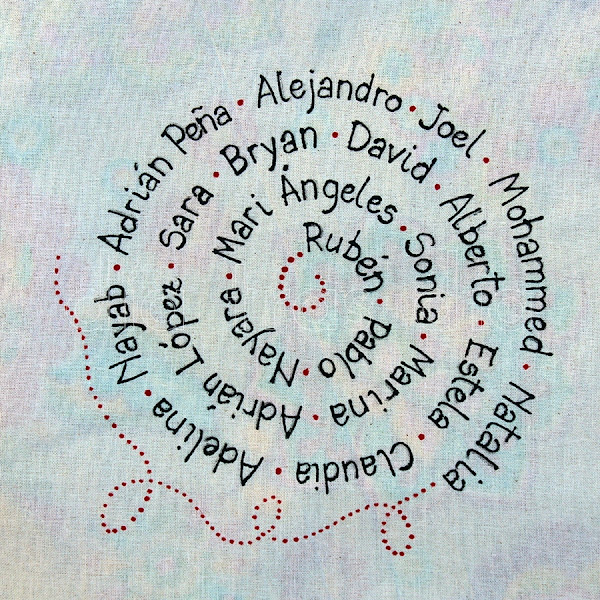 Rubén • Pablo • Nayara • Mari Ángeles • Sonia • Marina • Adrián López • Sara • Bryan • David • Alberto • Estela • Claudia • Adelina • Nayab • Adrián Peña • Alejandro • Joel • Mohammed • Natalia